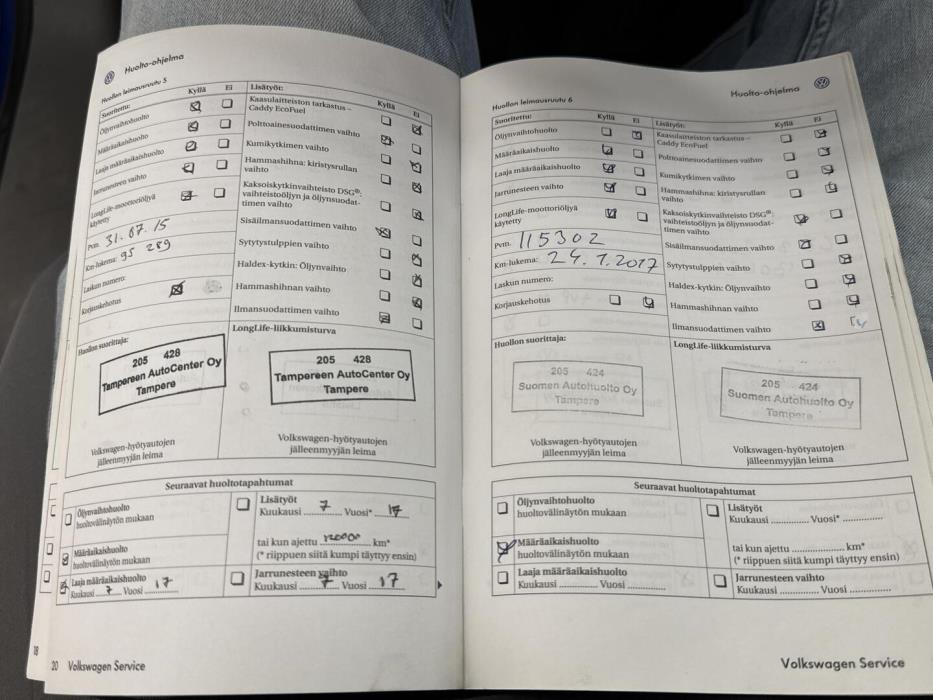 Huolto-ohjelma
Huollon leimausruutu 5
Suoritettu: Kyllä Ei
Öljynvaihtohuolto
Määräaikaishuolto
Laaja määräaikaishuolto
Jarrunesteen vaihto
LongLife-moottoriöljyä
käytetty
Pvm. 31.07.15
Km-lukema: 95 289
Laskun numero:
Korjauskehotus
Lisätyöt: Kyllä Ei
Kaasulaitteiston tarkastus –
Caddy EcoFuel
Polttoainesuodattimen vaihto
Kumikytkimen vaihto
Hammashihna: kiristysrullan
vaihto
Kaksoiskytkinvaihteisto DSG®:
vaihteistoöljyn ja öljynsuodat-
timen vaihto
Sisäilmansuodattimen vaihto
Sytytystulppien vaihto
Haldex-kytkin: Öljynvaihto
Hammashihnan vaihto
Ilmansuodattimen vaihto
Huollon suorittaja:
205 428
Tampereen AutoCenter Oy
Tampere
Volkswagen-hyötyautojen
jälleenmyyjän leima
LongLife-liikkumisturva
205 428
Tampereen AutoCenter Oy
Tampere
Volkswagen-hyötyautojen
jälleenmyyjän leima
Seuraavat huoltotapahtumat
Öljynvaihtohuolto
huoltovälinäytön mukaan
Määräaikaishuolto
huoltovälinäytön mukaan
Laaja määräaikaishuolto
Kuukausi 7 Vuosi 17
Lisätyöt
Kuukausi 7 Vuosi* 17
tai kun ajettu km*
(* riippuen siitä kumpi täyttyy ensin)
Jarrunesteen vaihto
Kuukausi 7 Vuosi 17
18
20 Volkswagen Service
Huolto-ohjelma
Huollon leimausruutu 6
Suoritettu: Kyllä Ei
Öljynvaihtohuolto
Määräaikaishuolto
Laaja määräaikaishuolto
Jarrunesteen vaihto
LongLife-moottoriöljyä
käytetty
Pvm. 115302
Km-lukema: 24.1.2017
Laskun numero:
Korjauskehotus
Lisätyöt: Kyllä Ei
Kaasulaitteiston tarkastus –
Caddy EcoFuel
Polttoainesuodattimen vaihto
Kumikytkimen vaihto
Hammashihna: kiristysrullan
vaihto
Kaksoiskytkinvaihteisto DSG®:
vaihteistoöljyn ja öljynsuodat-
timen vaihto
Sisäilmansuodattimen vaihto
Sytytystulppien vaihto
Haldex-kytkin: Öljynvaihto
Hammashihnan vaihto
Ilmansuodattimen vaihto
Huollon suorittaja:
205 424
Suomen Autohuolto Oy
Tampere
Volkswagen-hyötyautojen
jälleenmyyjän leima
LongLife-liikkumisturva
205 424
Suomen Autohuolto Oy
Tampere
Volkswagen-hyötyautojen
jälleenmyyjän leima
Seuraavat huoltotapahtumat
Öljynvaihtohuolto
huoltovälinäytön mukaan
Määräaikaishuolto
huoltovälinäytön mukaan
Laaja määräaikaishuolto
Kuukausi Vuosi
Lisätyöt
Kuukausi Vuosi*
tai kun ajettu km*
(* riippuen siitä kumpi täyttyy ensin)
Jarrunesteen vaihto
Kuukausi Vuosi
Volkswagen Service